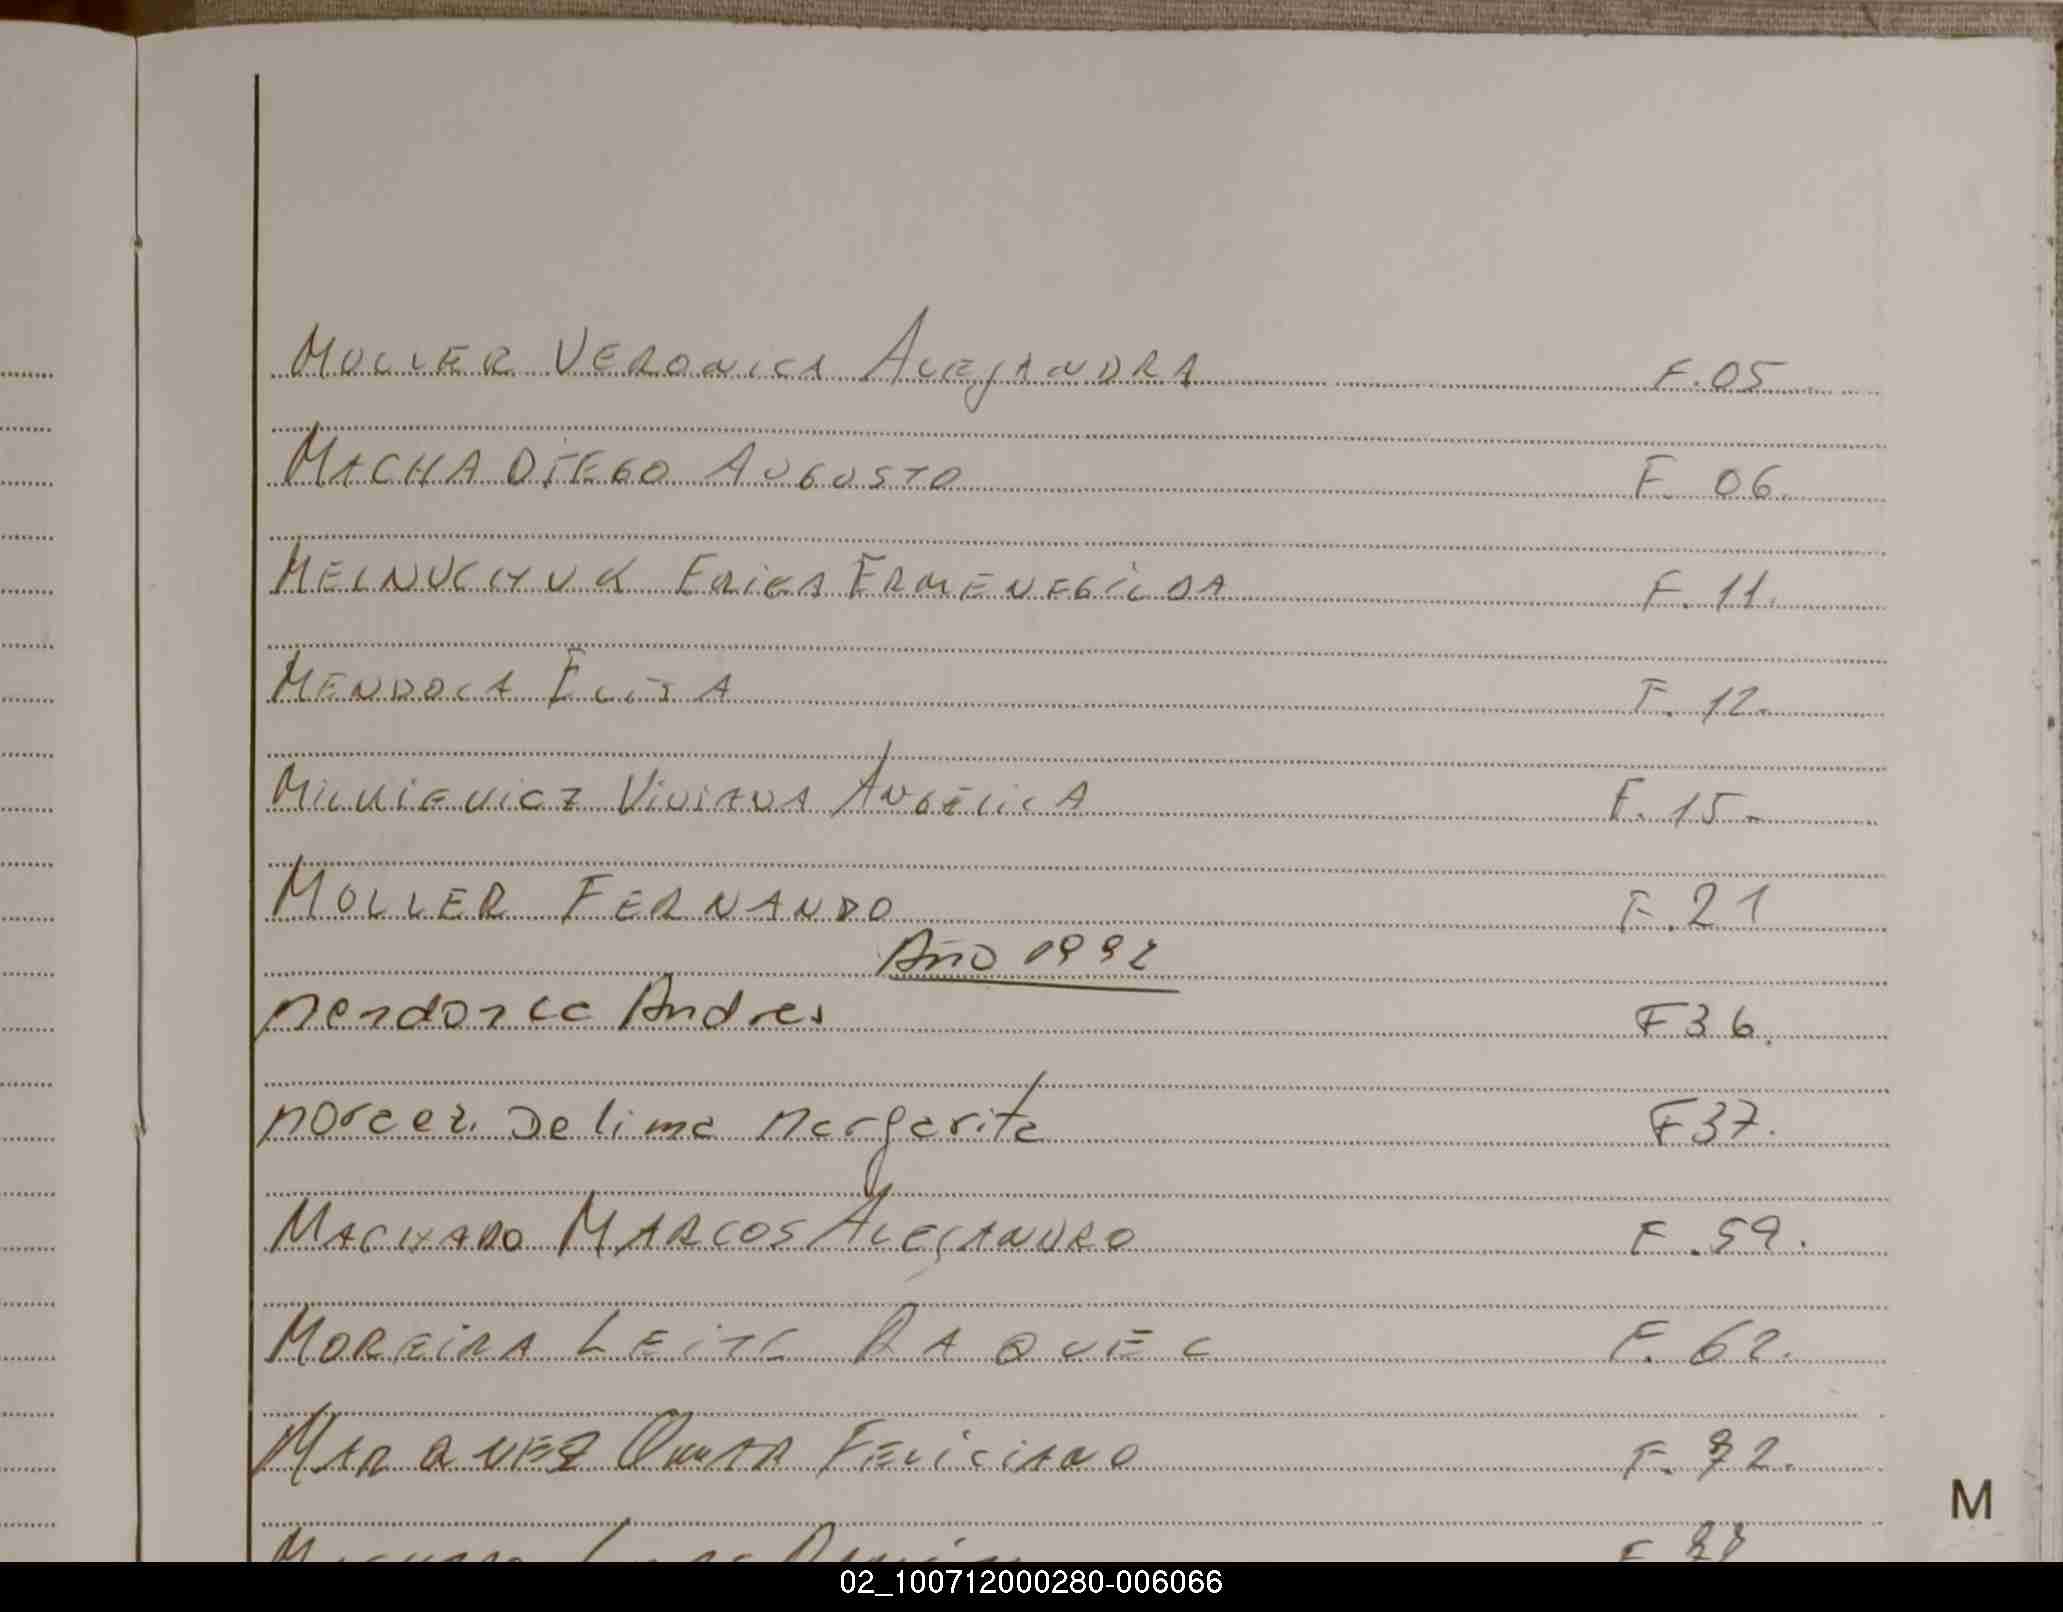 MOLLER VERONICA ALEJANDRA F.05
MACHA DIEGO AUGUSTO F. 06.
MELNUCHUK ERICA ERMENEGILDA F. 11.
MENDOCA ELISA F. 12.
VIVIANA ANGELICA F. 15-
MOLLER FERNANDO F. 21
Año 1992
Mendonca Andres F36.
De lima Margarita F37.
MACHADO MARCOS ALEJANDRO F. 59.
MOREIRA LEITE RAQUEL F. 62.
MARQUEZ OMAR FELICIANO F. 72.
M
02_100712000280-006066